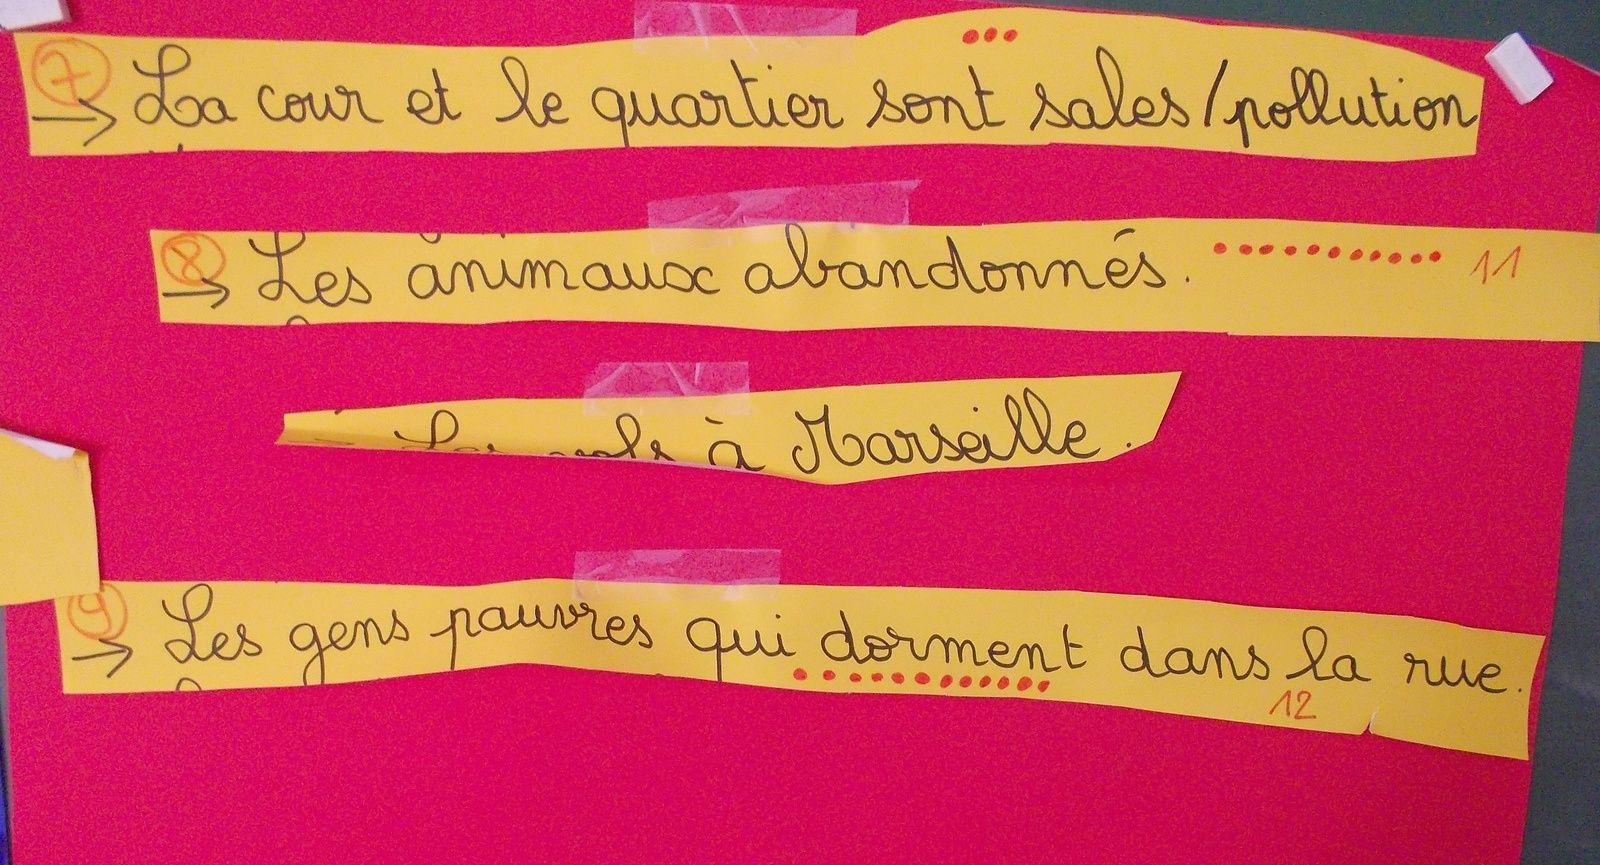 7 → La cour et le quartier sont sales/pollution
8 → Les animaux abandonnés. 11
Les vols à Marseille.
9 → Les gens pauvres qui dorment dans la rue.
12